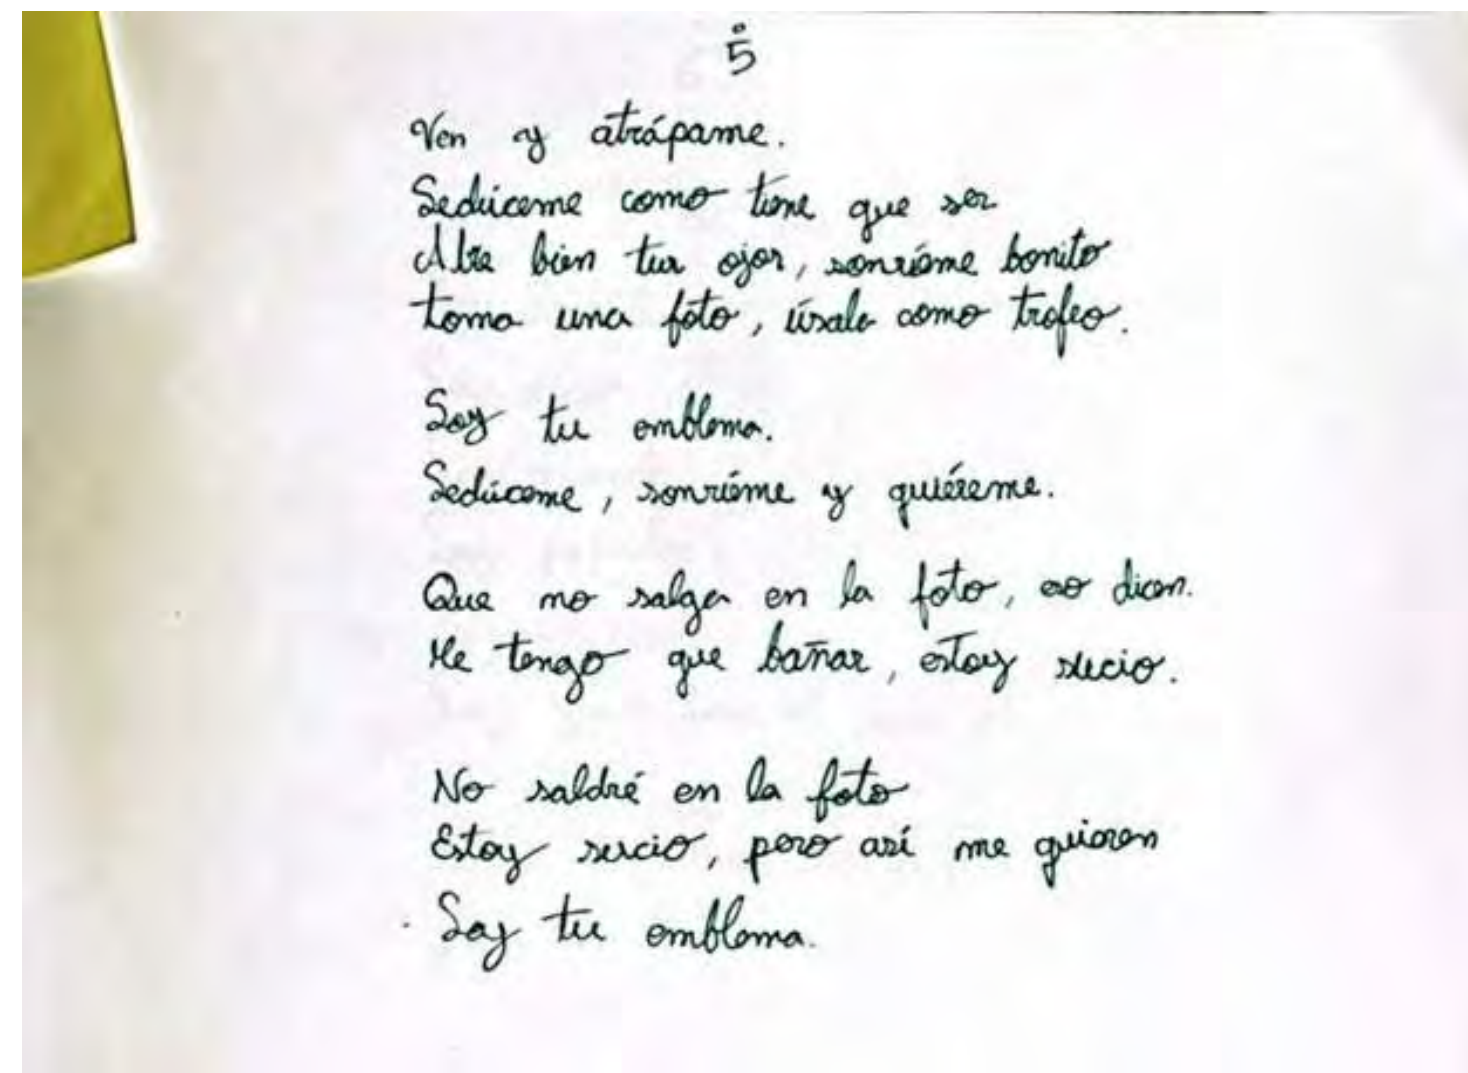 5
Ven y atrápame.
Sedúceme como tiene que ser
Abre bien tus ojos, sonríeme bonito
toma una foto, úsalo como trofeo.
Soy tu emblema.
Sedúceme, sonríeme y quiéreme.
Que no salga en la foto, eso dicen.
Me tengo que bañar, estoy sucio.
No saldré en la foto
Estoy sucio, pero así me quieren
Soy tu emblema.